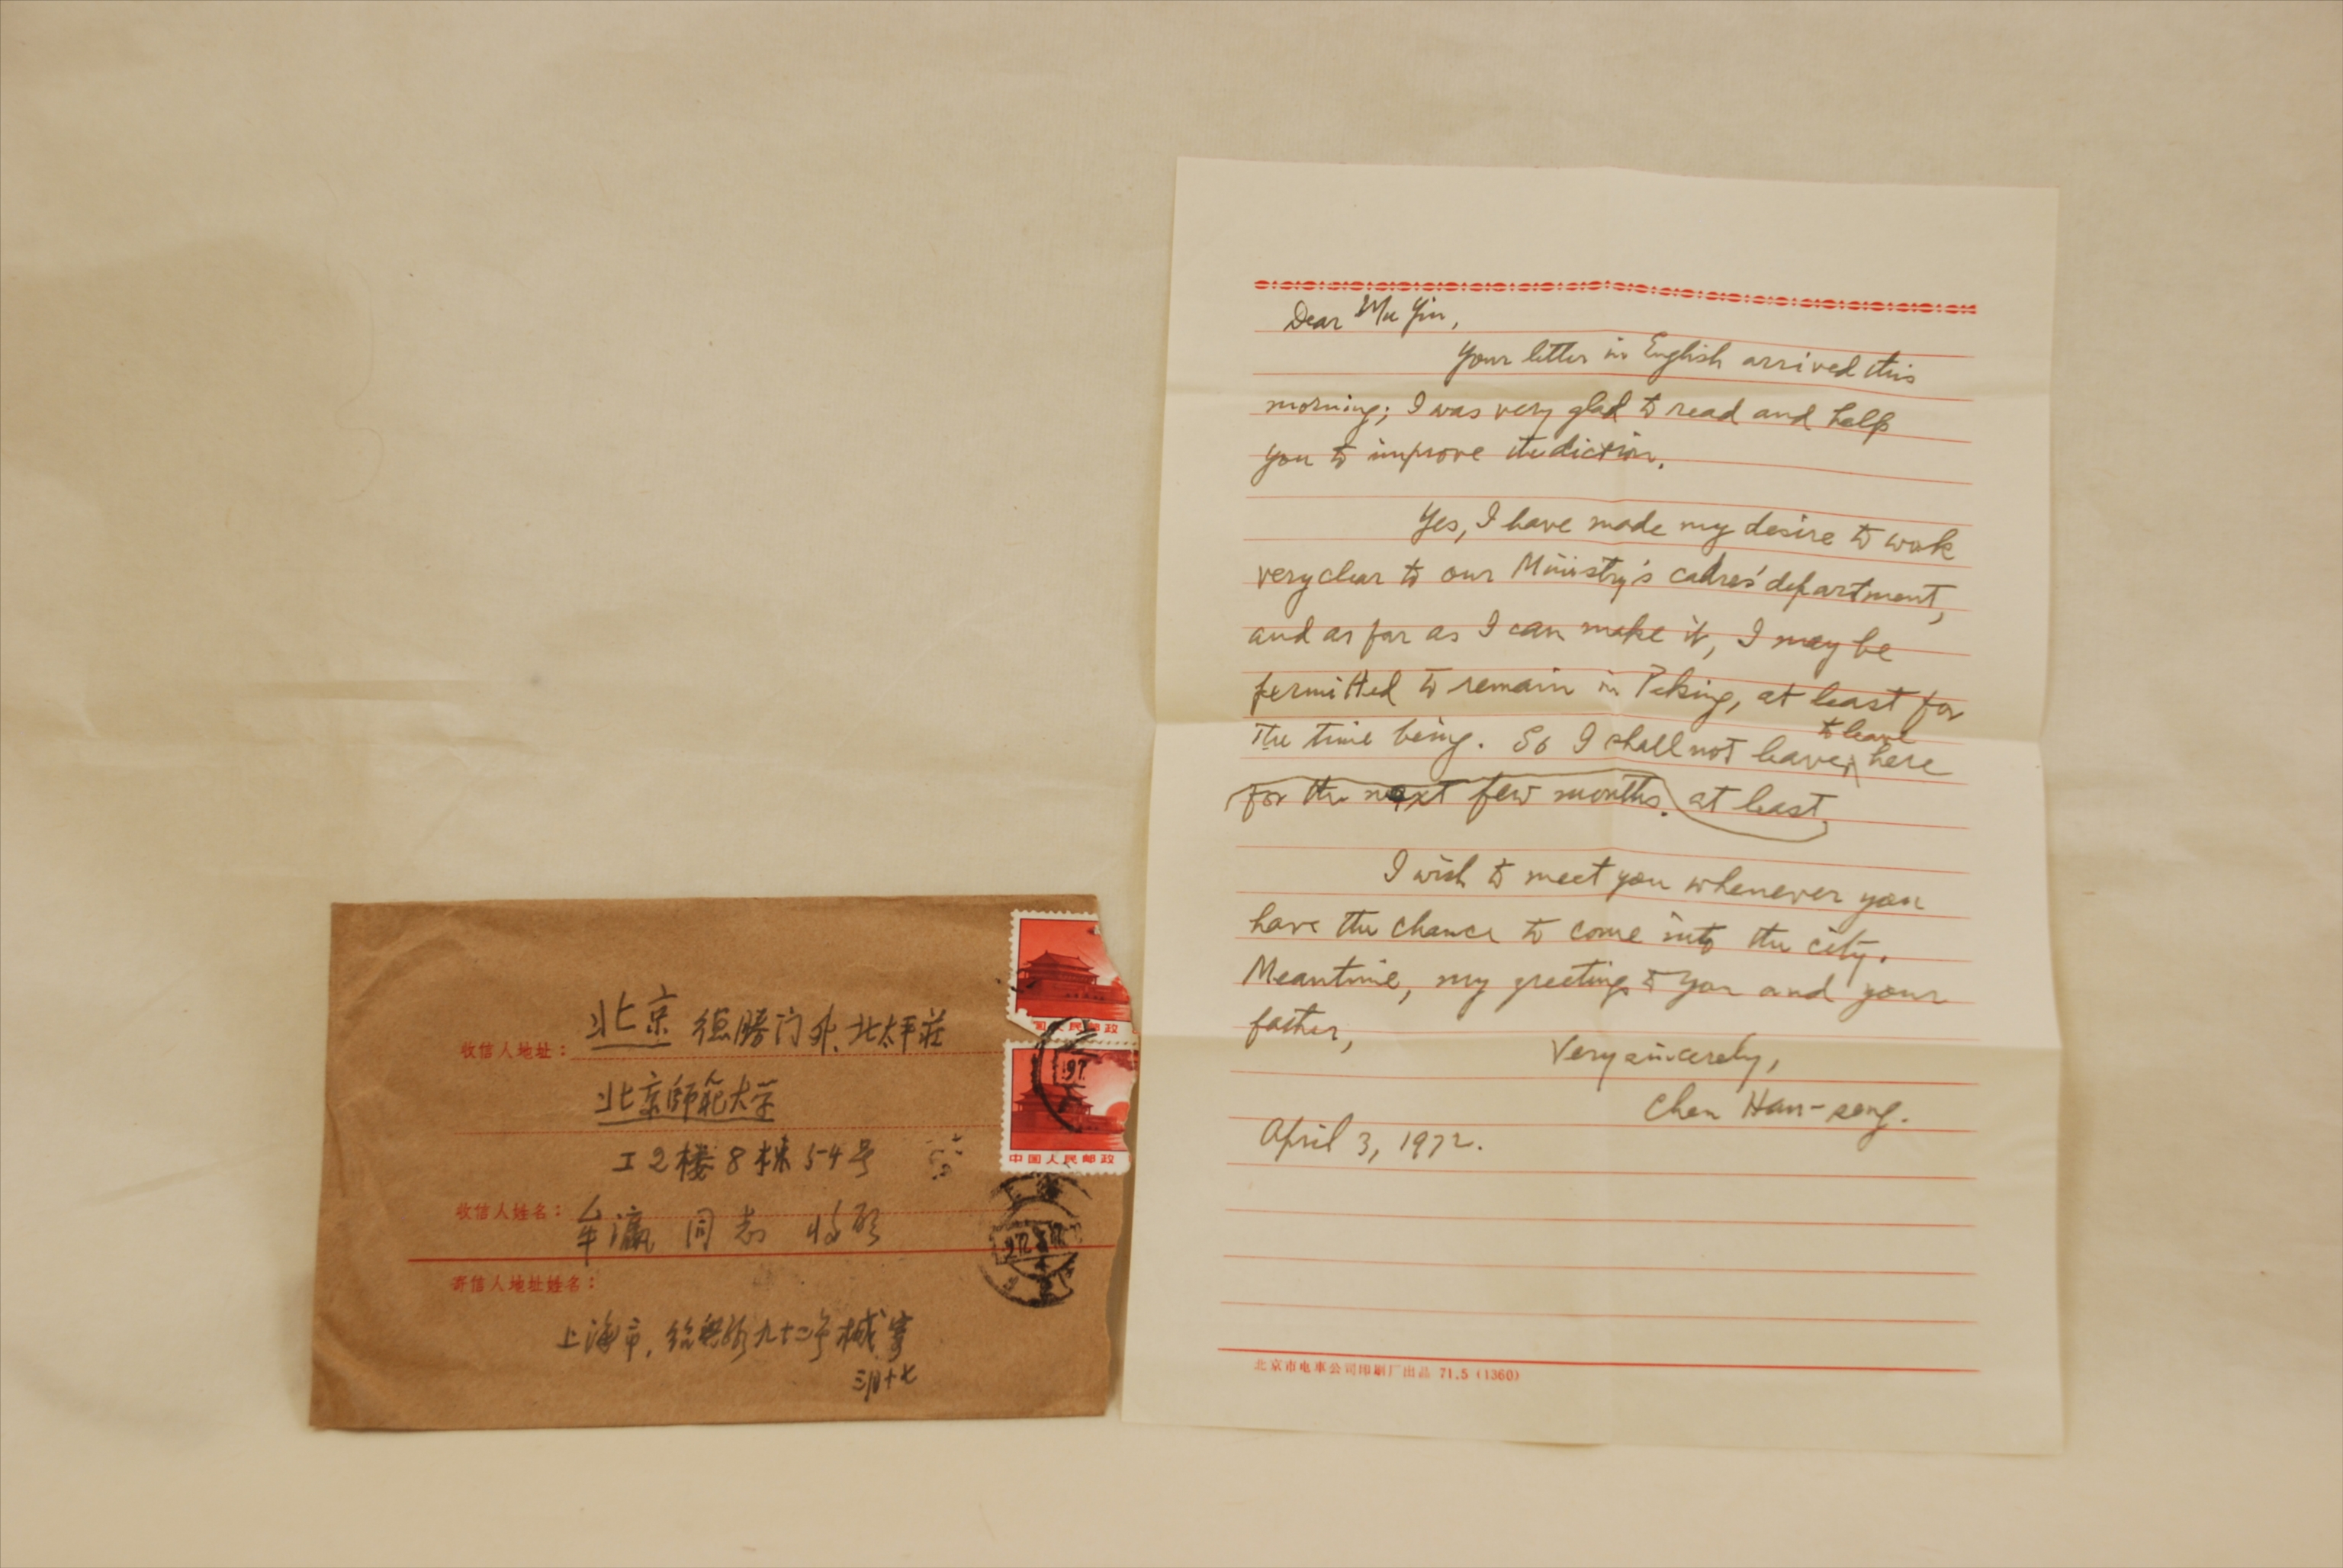 收信人地址：北京 德勝门外 北太平莊
北京師範大学
工2楼8栋54号
收信人姓名：牟瀛 同志 收啟
寄信人地址姓名：
上海市，绍興路九十二号 械寄
三月十七
国人民邮政
中国人民邮政
197
Dear Mu Yin,
Your letter in English arrived this
morning; I was very glad to read and help
you to improve the diction.
Yes, I have made my desire to work
very clear to our Ministry's cadres' department,
and as far as I can make it, I may be
permitted to remain in Peking, at least for
to leave
the time being. So I shall not leave, here
for the next few months. at least.
I wish to meet you whenever you
have the chance to come into the city.
Meantime, my greetings to you and your
father,
Very sincerely,
Chen Han-seng.
April 3, 1972.
北京市电車公司印刷厂出品 71.5 (1360)